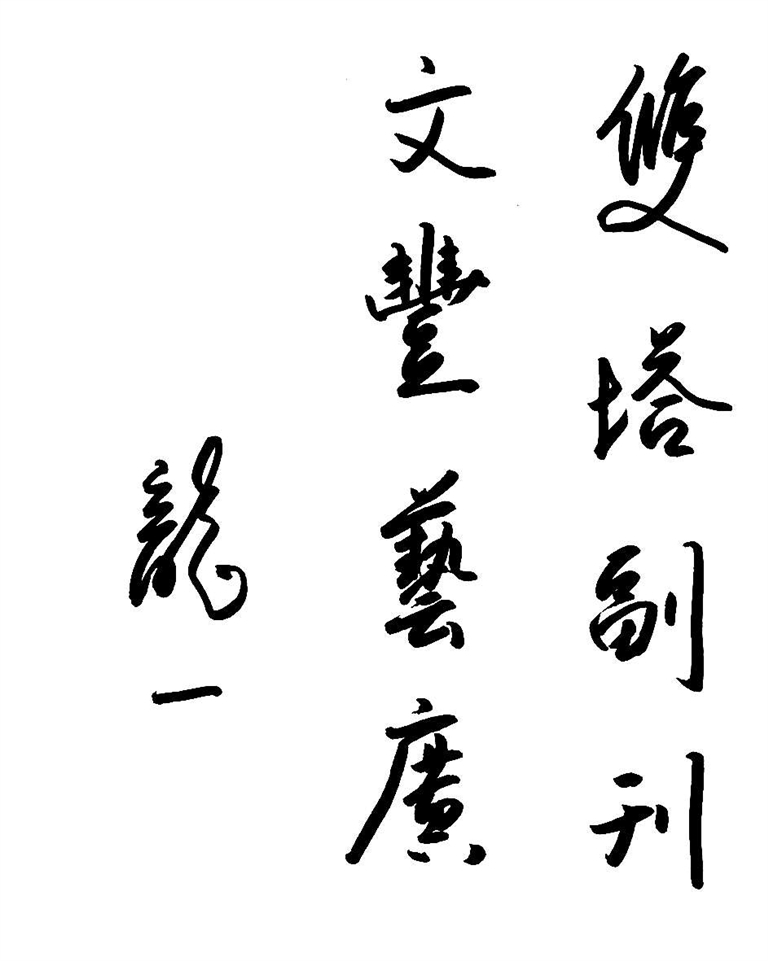 雙塔副刊
文豐藝廣
龍一